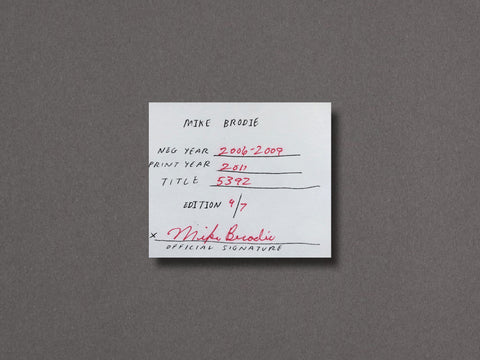 MIKE BRODIE
NEG YEAR 2006-2009
PRINT YEAR 2011
TITLE 5392
EDITION 4/7
x Mike Brodie
OFFICIAL SIGNATURE